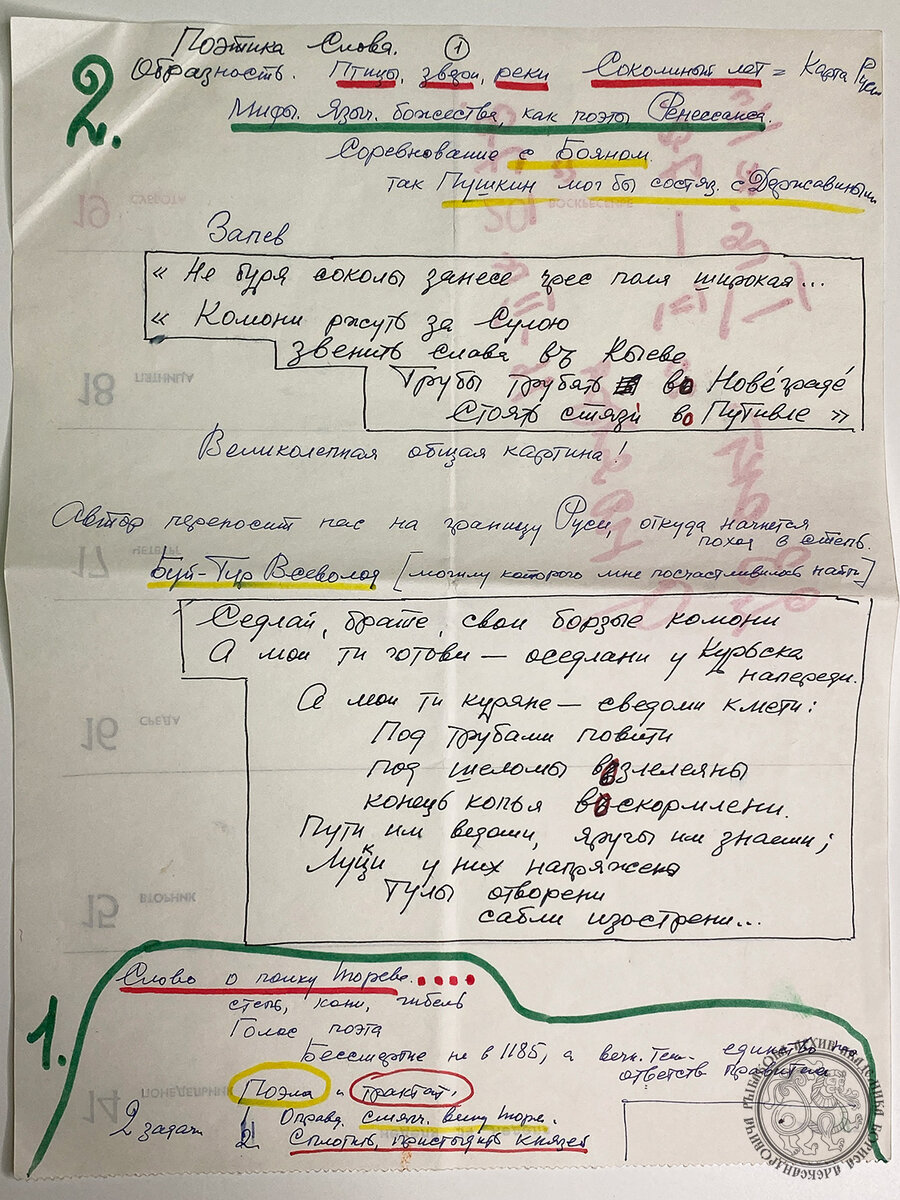 Поэтика Слова. 1
2.
Образность. Птицы, звезды, реки Соколиный лет = Карта Руси
Мифы. Языч. божества, как поэты Ренессанса.
Соревнование с Бояном.
так Пушкин мог бы состяз. с Державиным
Запев
« Не буря соколы занесе чрес поля широкая...
« Комони ржуть за Сулою
звенить слава въ Кыеве
Трубы трубять во Новеграде
Стоять стязи во Путивле »
Великолепная общая картина!
Автор переносит нас на границу Руси, откуда начнется
поход в степь.
Буй-Тур Всеволод [могилу которого мне посчастливилось найти]
Седлай, брате, свои борзые комони
А мои ти готови — оседлани у Курьска
напереди.
А мои ти куряне — сведоми кмети:
Под трубами повити
под шеломы возлелеяны
конець копья воскормлени.
Пути им ведоми, яругы им знаеми;
Луци у них напряжени
Тулы отворени
сабли изострени...
1.
Слово о полку Игореве.....
степь, кони, гибель
Голос поэта
Бессмертие не в 1185, а вечн. тем. единство
ответств правители
Поэма и трактат.
2 задачи
1 Оправд. смягч. вину Игоре.
2. Сплотить, пристыдить князей
19 СУББОТА
20 ВОСКРЕСЕНЬЕ
18 ПЯТНИЦА
17 ЧЕТВЕРГ
16 СРЕДА
15 ВТОРНИК
14 ПОНЕДЕЛЬНИК
АРХИВ АКАДЕМИКА БОРИСА АЛЕКСАНДРОВИЧА РЫБАКОВА